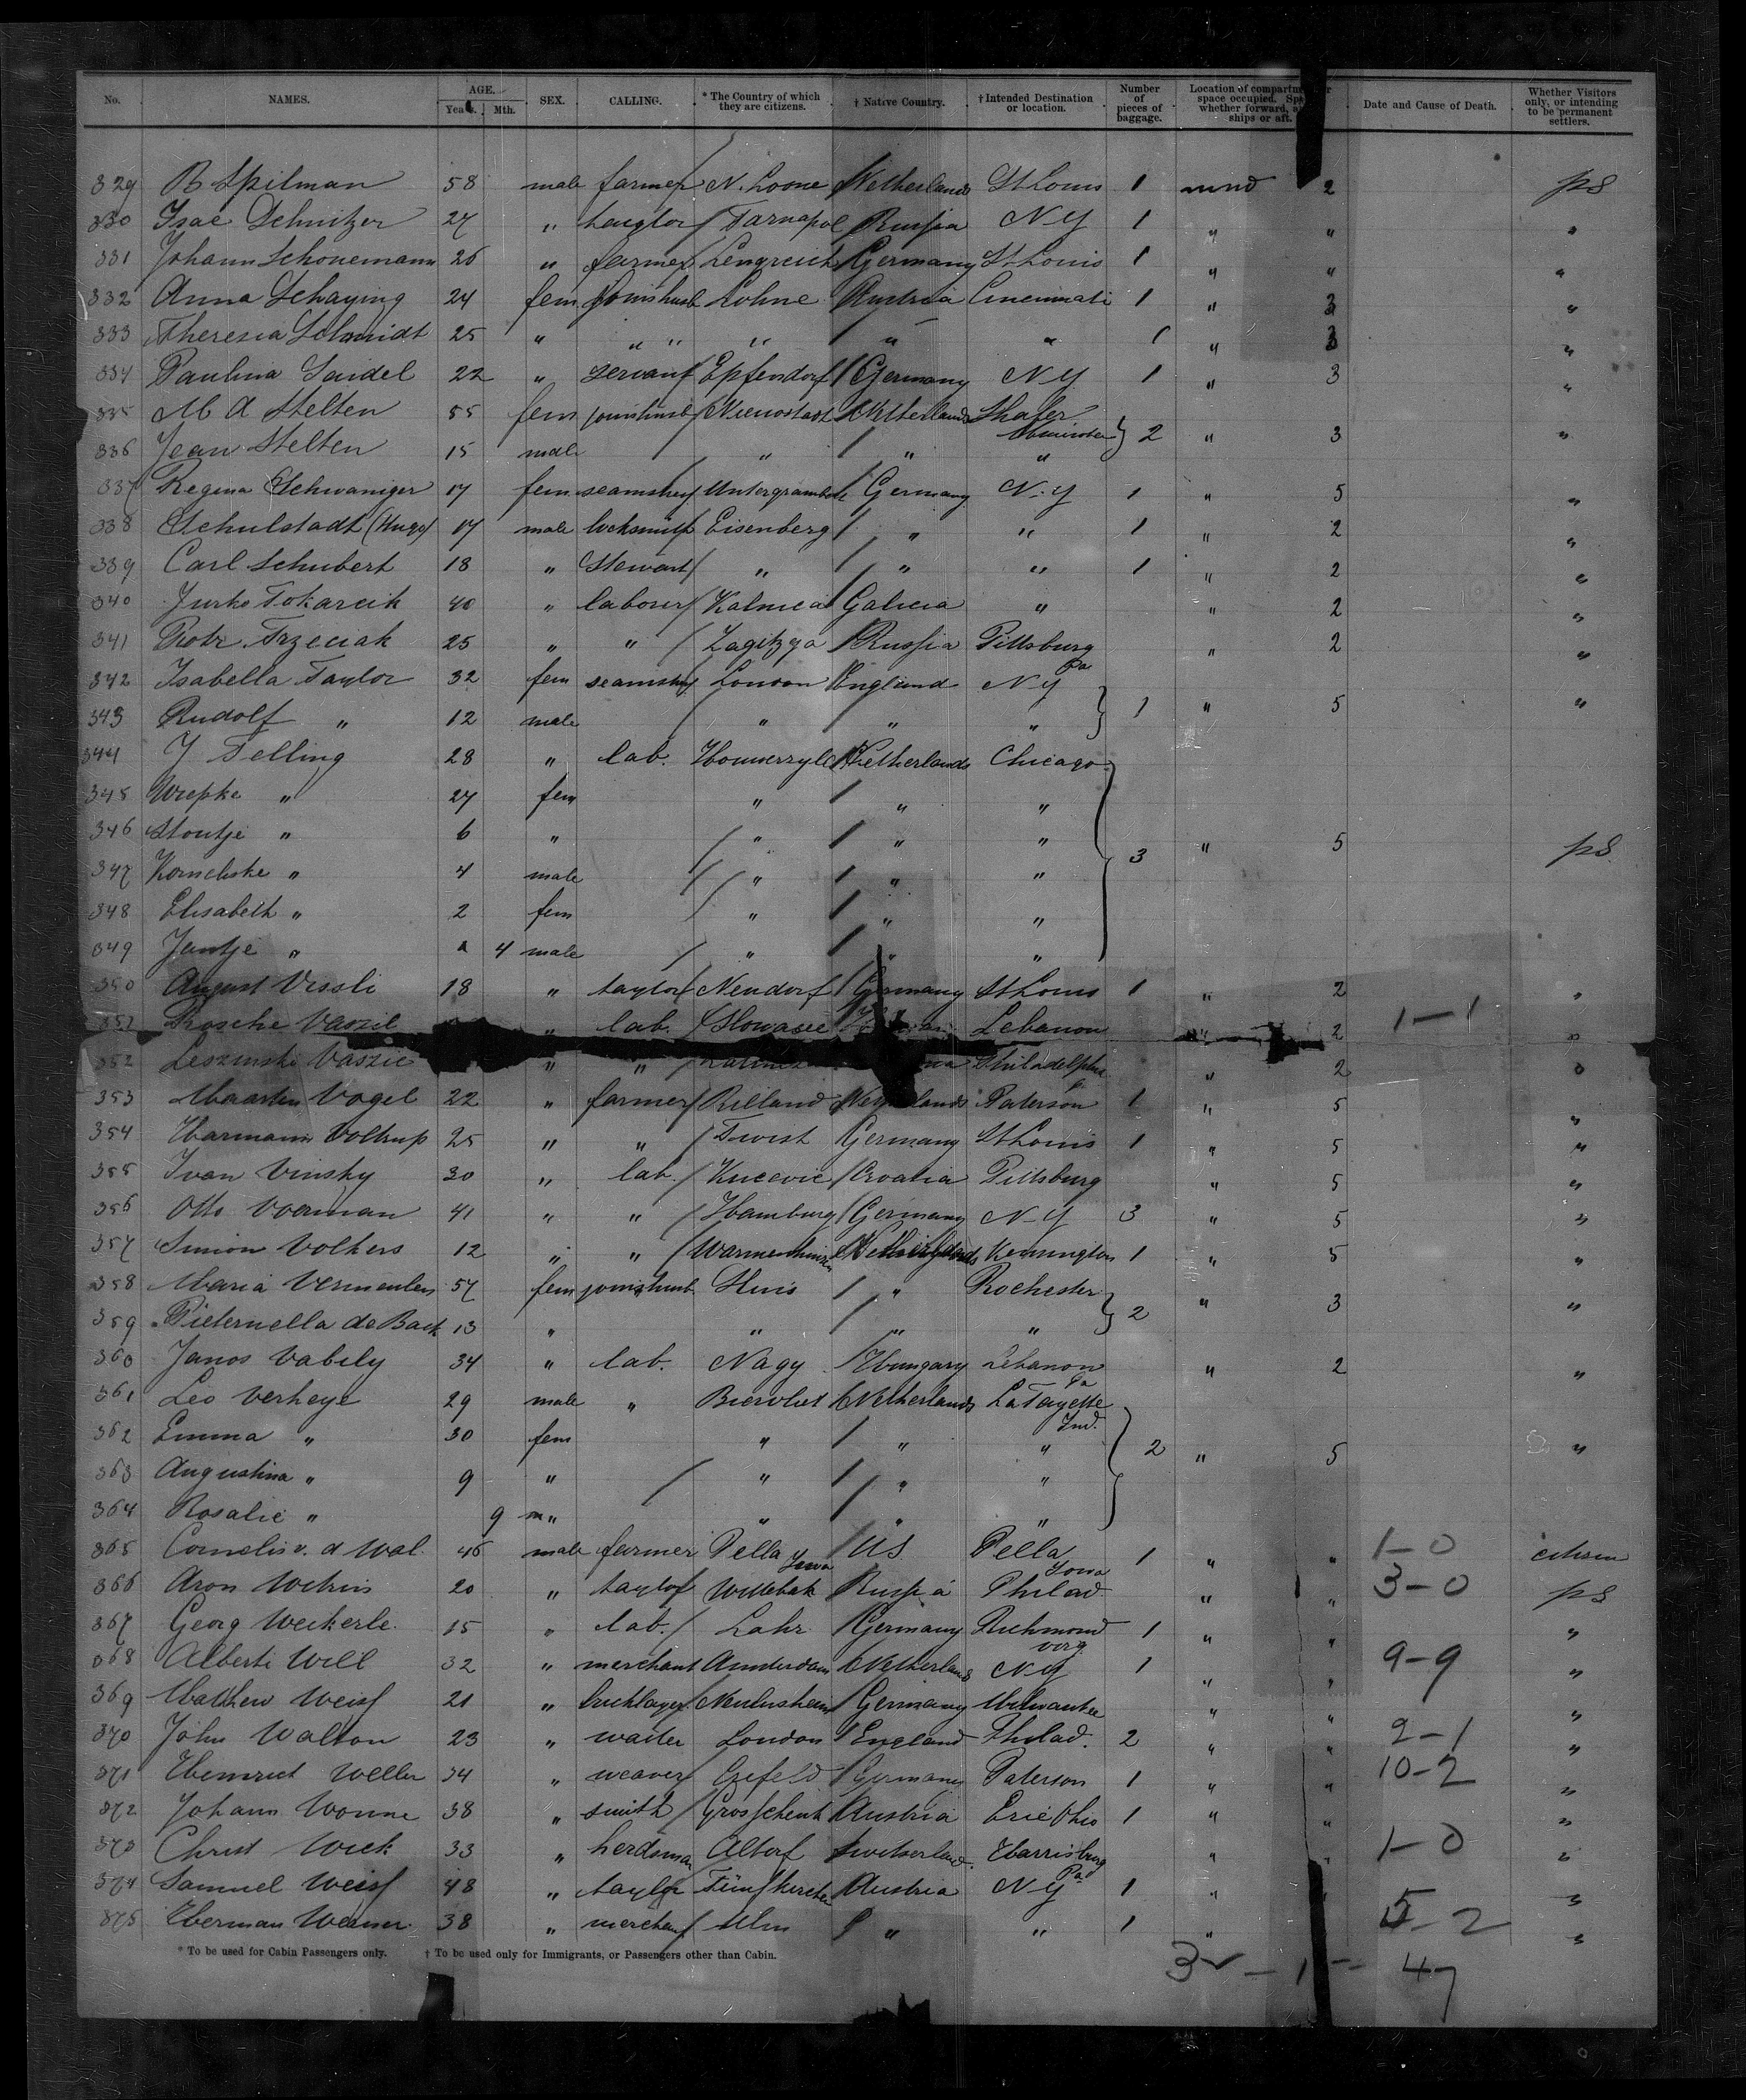 No. NAMES. AGE. SEX. CALLING. * The Country of which they are citizens. † Native Country. † Intended Destination or location. Number of pieces of baggage. Location of compartment space occupied. whether forward, ships or aft. Date and Cause of Death. Whether Visitors only, or intending to be permanent settlers.
Years. Mth.
329 B Spilman 58 male farmer N. Loone Netherlands St Louis 1 mnd 2 ps
330 Isac Schnitzer 27 " taylor Tarnapol Russia N Y 1 " " "
331 Johann Schonemann 26 " farmer Lengreich Germany St Louis 1 " " "
332 Anna Schaying 24 fem joinshusb Lohne Austria Cincinnati 1 " 3 "
333 Theresia Schmidt 25 " " " " " " 1 " 3 "
334 Paulina Saidel 22 " servant Epfendorf Germany N Y 1 " 3 "
335 M A Stelten 55 fem joinshusb Nieuwstadt Netherlands
336 Jean Stelten 15 male " " " 2 " 3 "
337 Regina Schwaniger 17 fem seamstress Germany N.Y 1 " 5 "
338 Schulstadt (Hugo) 17 male locksmith Eisenberg " " 1 " 2 "
339 Carl Schubert 18 " Stewart " " " 1 " 2 "
340 Jurko Tokarcik 40 " laborer Kalnica Galicia " " 2 "
341 Piotr Trzeciak 25 " " Zagitzga Russia Pittsburg Pa " 2 "
342 Isabella Taylor 32 fem seamstress London England N Y
343 Rudolf " 12 male " " " 1 " 5 "
344 J Telling 28 " lab. Netherlands Chicago
345 Wupke " 27 fem " " "
346 Stoutje " 6 " " " "
347 Korneliske " 4 male " " " 3 " 5 ps
348 Elisabeth " 2 fem " " "
349 Jantje " 4 male " " "
350 August Vissli 18 " taylor Neudorf Germany St Louis 1 " 2 "
351 Prosche Vaszil " lab. Slowacee Lebanon " 2 1-1 "
352 Leszinski Vaszic " " Philadelphia " 2 "
353 Maarten Vogel 22 " farmer Rilland Netherlands Paterson 1 " 5 "
354 Harmann Voltrup 25 " " Twist Germany St Louis 1 " 5 "
355 Ivan Vinsky 30 " lab. Kucevic Croatia Pittsburg " 5 "
356 Otto Voorman 41 " " Hamburg Germany N-Y 3 " 5 "
357 Simon Volkers 12 " " Warmenhuizen Netherlands Kensington 1 " 5 "
358 Maria Vermeulen 57 fem joinshusb Sluis " Rochester
359 Pieternella de Back 13 " " " " 2 " 3 "
360 Janos Vabily 34 " lab. Nagy Hungary Lebanon Pa " 2 "
361 Leo Verheye 29 male " Biervliet Netherlands LaFayette Ind.
362 Emma " 30 fem " " " 2 " 5 "
363 Augustina " 9 " " " "
364 Rosalie " 9 m " " " "
365 Cornelis v. d Wal 46 male farmer Pella Iowa US Pella Iowa 1 " " 1-0 citizen
366 Aron 20 " taylor Witebsk Russia Philad. " " 3-0 ps
367 Georg Weckerle 15 " lab. Lahr Germany Richmond virg 1 " " "
368 Alberti Will 32 " merchant Amsterdam Netherlands N Y 1 " " 9-9 "
369 Mathew Weiss 21 " bricklayer Germany Milwaukee " " "
370 John Walton 23 " waiter London England Philad. 2 " " 2-1 "
371 Heinrich Weller 34 " weaver Crefeld Germany Paterson 1 " " 10-2 "
372 Johann Wonne 38 " smith Grosschenk Austria Erie Ohio 1 " " "
373 Christ Wick 33 " herdsman Altorf Switserland Harrisburg Pa " " 1-0 "
374 Samuel Weiss 48 " taylor Fünfkirchen Austria N Y 1 " "
375 Herman Werner 38 " merchant Ulm " " 1 " 5-2 "
* To be used for Cabin Passengers only. † To be used only for Immigrants, or Passengers other than Cabin.
47